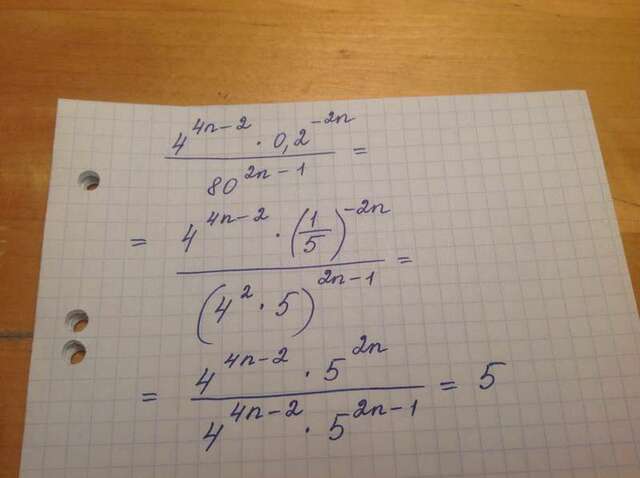 4^{4n-2} · 0,2^{-2n}
80^{2n-1} =
= 4^{4n-2} · (1/5)^{-2n}
(4^2 · 5)^{2n-1} =
= 4^{4n-2} · 5^{2n}
4^{4n-2} · 5^{2n-1} = 5